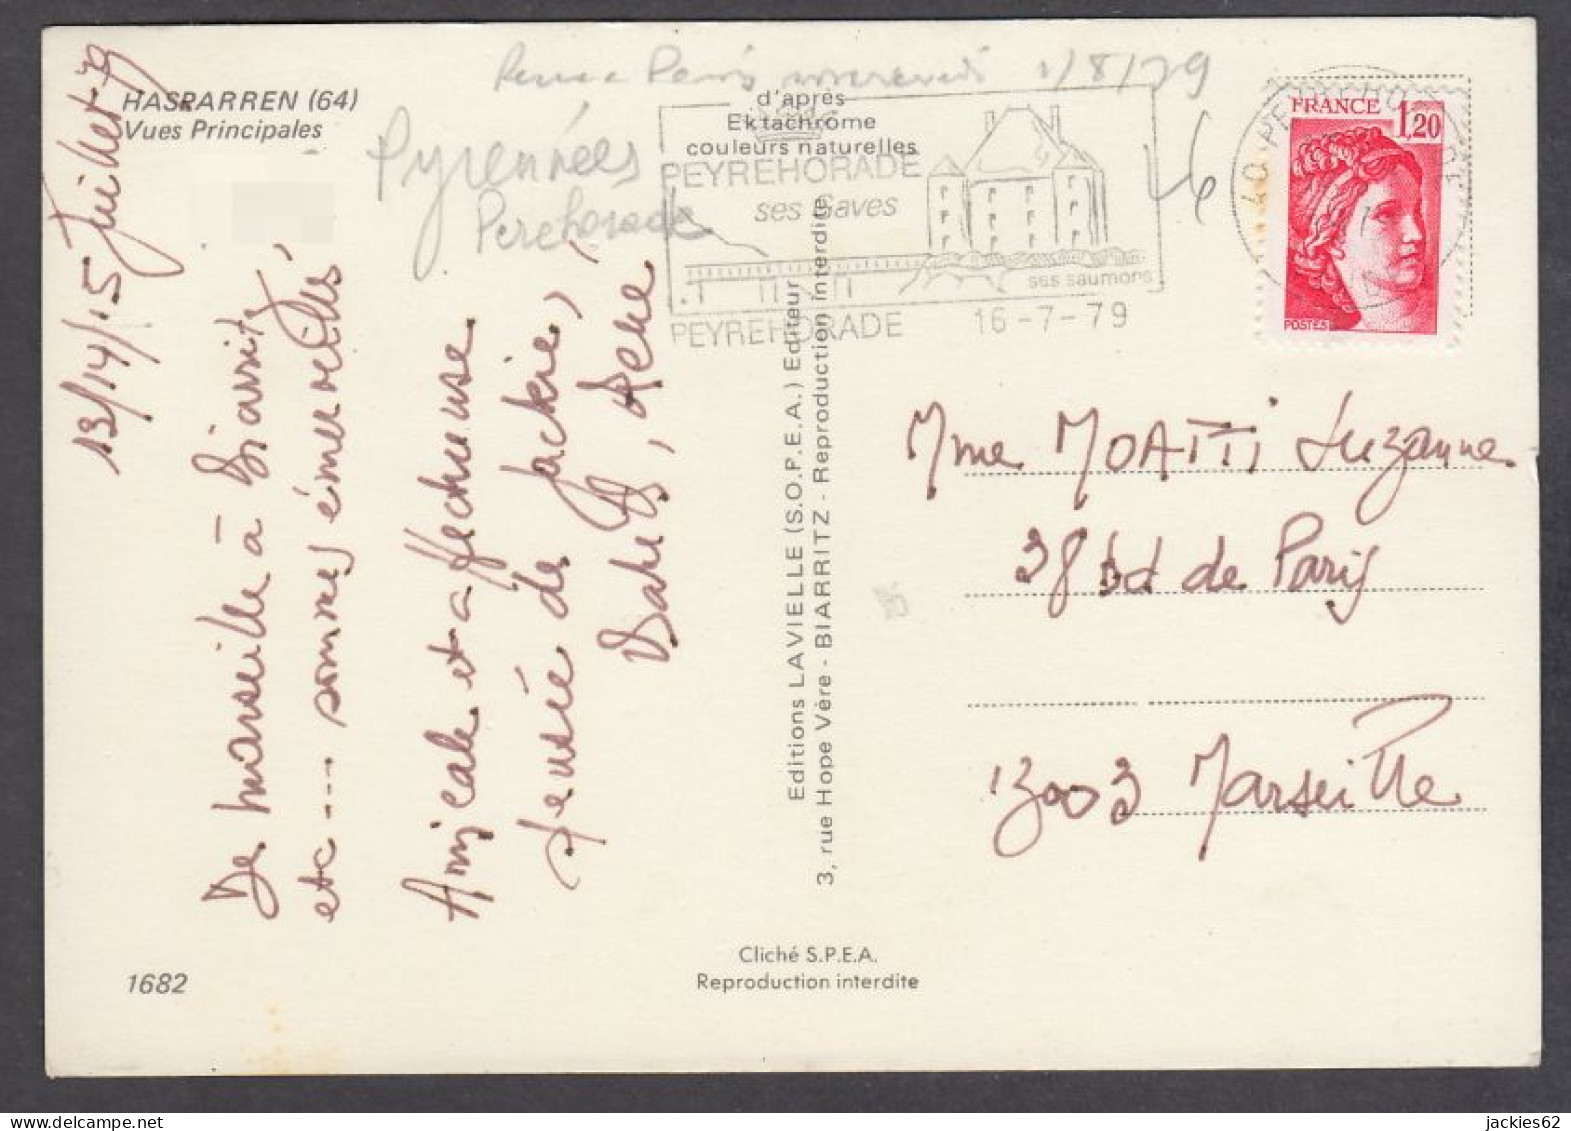 HASPARREN (64)
Vues Principales
13/14/15 Juillet 79
De Marseille à Biarritz,
etc---- sommes émerveillés
Amicale et affectueuse
pensée de Jackie,
René
Paris 1/8/79
Pyrennées
Perehorade
d'après
Ektachrome
couleurs naturelles
PEYREHORADE
ses Gaves
ses saumons
PEYREHORADE 16-7-79
40 PEYREHORADE
FRANCE 1,20
POSTES
Editions LAVIELLE (S.O.P.E.A.) Editeur
3, rue Hope Vère - BIARRITZ - Reproduction interdite
Mme MOATTI Suzanne
38 bd de Paris
13003 Marseille
Cliché S.P.E.A.
Reproduction interdite
1682
jackies62